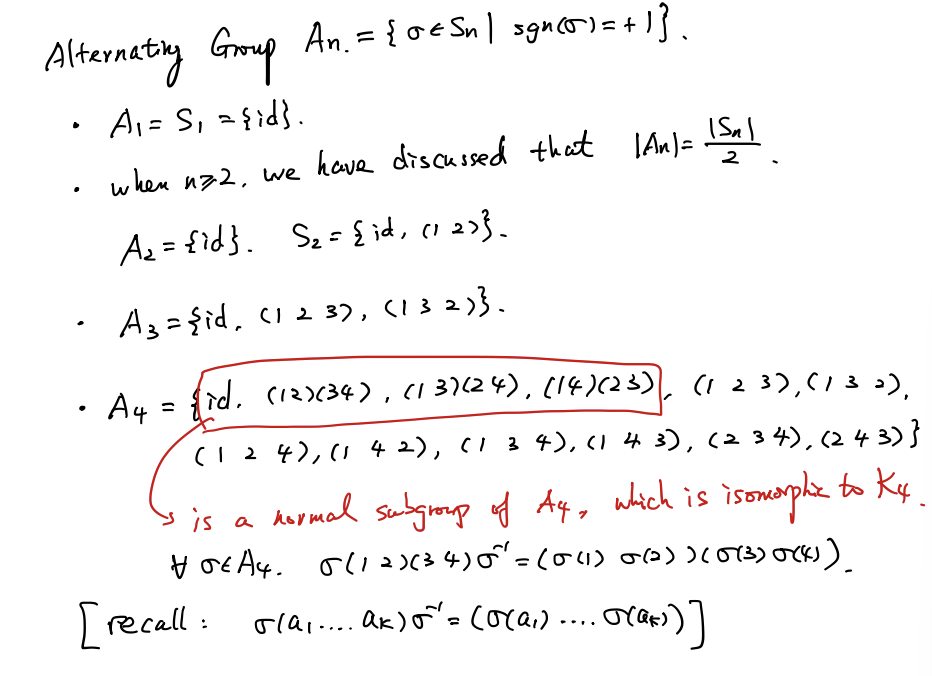 Alternating Group Aₙ. = { σ ∈ Sₙ | sgn(σ) = + 1}.
· A₁ = S₁ = {id}.
· when n ≥ 2, we have discussed that |Aₙ| = |Sₙ| / 2.
A₂ = {id}. S₂ = { id, (1 2)}.
· A₃ = {id, (1 2 3), (1 3 2)}.
· A₄ = {id, (12)(34), (1 3)(2 4), (14)(23), (1 2 3), (1 3 2),
(1 2 4), (1 4 2), (1 3 4), (1 4 3), (2 3 4), (2 4 3)}
is a normal subgroup of A₄, which is isomorphic to K₄.
∀ σ ∈ A₄. σ(1 2)(3 4)σ⁻¹ = (σ(1) σ(2))(σ(3) σ(4)).
[recall : σ(a₁ .... aₖ)σ⁻¹ = (σ(a₁) .... σ(aₖ))]